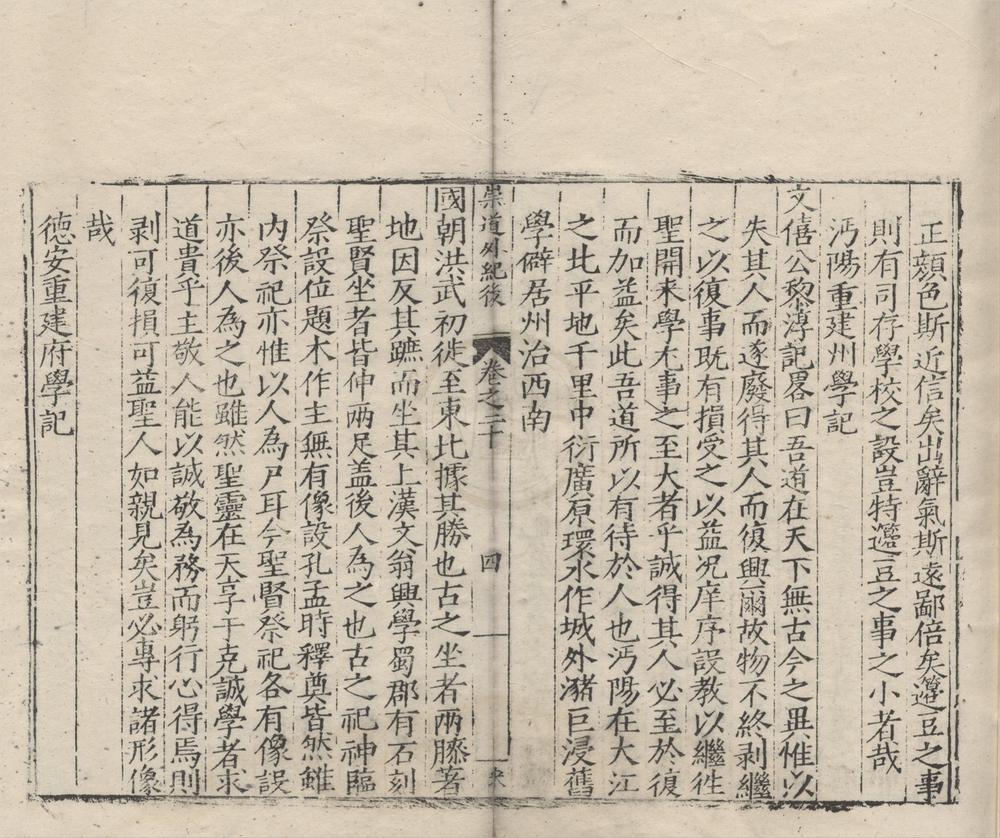 正顔色斯近信矣出辭氣斯遠鄙倍矣籩豆之事
則有司存學校之設豈特籩豆之事之小者哉
沔陽重建州學記
文僖公黎淳記畧曰吾道在天下無古今之異惟以
失其人而遂廢得其人而復興爾故物不終剥繼
之以復事既有損受之以益况庠序設教以繼徃
聖開来學尤事之至大者乎誠得其人必至於復
而加益矣此吾道所以有待於人也沔陽在大江
之北平地千里中衍廣原環水作城外瀦巨浸舊
學僻居州治西南
崇道外紀後
卷之二十
四
國朝洪武初徙至東北據其勝也古之坐者兩膝著
地因反其蹠而坐其上漢文翁興學蜀郡有石刻
聖賢坐者皆伸兩足盖後人為之也古之祀神臨
祭設位題木作主無有像設孔孟時釋奠皆然雖
内祭祀亦惟以人為尸耳今聖賢祭祀各有像設
亦後人為之也雖然聖靈在天享于克誠學者求
道貴乎主敬人能以誠敬為務而躬行心得焉則
剥可復損可益聖人如親見矣豈必專求諸形像
哉
德安重建府學記